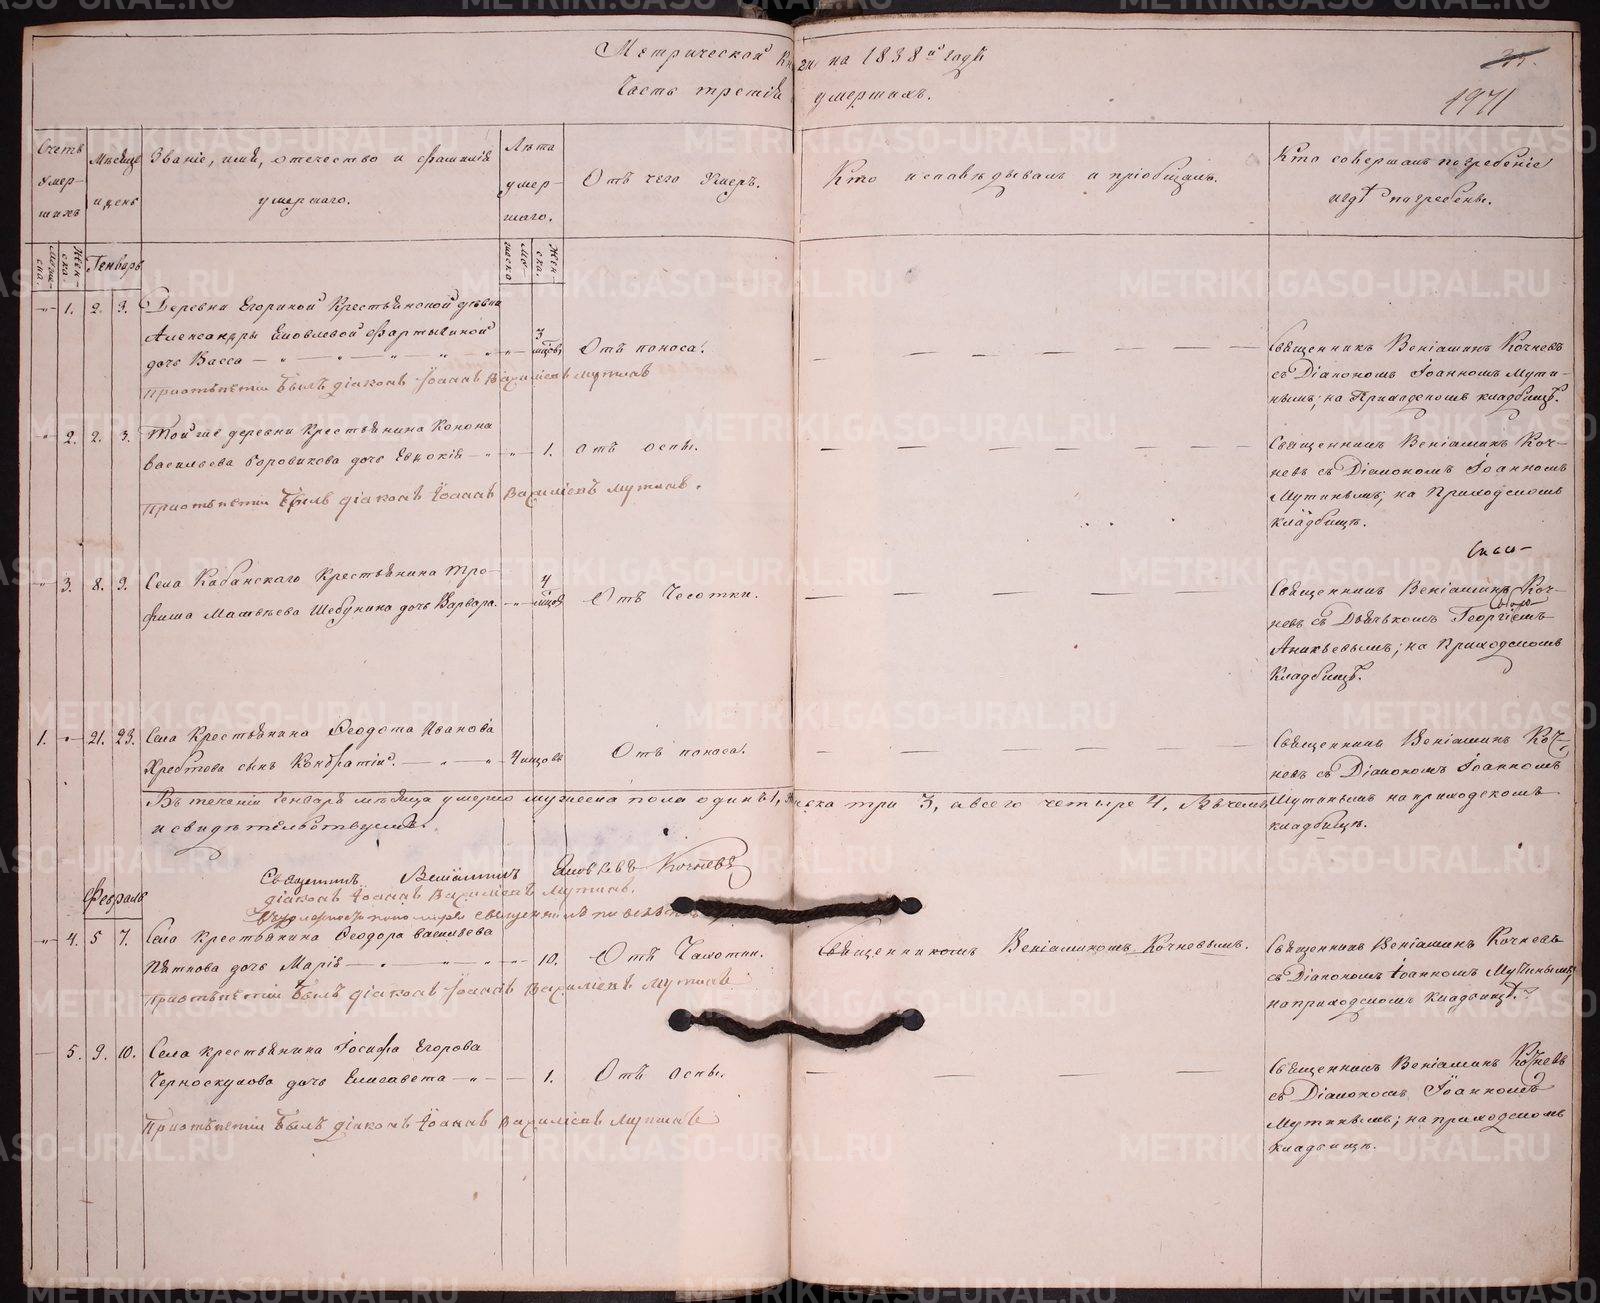 Метрической книги на 1838й годъ
Часть третія умершихъ.
35.
1971
Счетъ умершихъ
Мѣсяцъ и день
Званіе, имя, отечество и фамилія умершаго.
Лѣта умершаго.
Отъ чего умеръ.
Кто исповѣдывалъ и пріобщалъ.
Кто совершалъ погребеніе
и гдѣ погребены.
Мужеска.
Женска.
Генварь
Мужеска
Женска.
1. 2. 3. Деревни Егориной Крестьянской дѣвки
Александры Яковлевой Фартыгиной
дочь Васса 3 мцовъ Отъ поноса.
При отпѣтіи былъ діаконъ Іоаннъ Мутинъ
Священникъ Веніаминъ Кочневъ
съ Діакономъ Іоанномъ Мути-
нымъ; на Приходскомъ кладбищѣ.
2. 2. 3. Той же деревни Крестьянина Конона
Васильева Боровикова дочь Евдокія 1. отъ оспы.
При отпѣтіи былъ діаконъ Іоаннъ Мутинъ.
Священникъ Веніаминъ Коч-
невъ съ Діакономъ Іоанномъ
Мутинымъ; на Приходскомъ
кладбищѣ.
3. 8. 9. Села Кабанскаго Крестьянина Тро-
фима Матвѣева Шебунина дочь Варвара. 4 мцовъ Отъ Чесотки.
Священникъ Веніаминъ Коч-
невъ съ Дьячькомъ Георгіемъ
Аникьевымъ; на Приходскомъ
Кладбищѣ.
1. 21. 23. Села Крестьянина Ѳеодота Иванова
Хребтова сынъ Кондратій. 4 мцовъ Отъ поноса.
Священникъ Веніаминъ Коч-
невъ съ Діакономъ Іоанномъ
Мутинымъ на приходскомъ
кладбищѣ.
Въ теченіи Генваря мѣсяца умерло мужеска пола одинъ 1, женска три 3, а всего четыре 4. Въ чемъ
и свидѣтельствуемъ.
Священникъ Веніаминъ Яковлевъ Кочневъ
діаконъ Іоаннъ Мутинъ.
Февраль
4. 5 7. Села Крестьянина Ѳеодора Васильева
Пяткова дочь Марія 10. Отъ Чахотки.
При отпѣтіи былъ діаконъ Іоаннъ Мутинъ
Священникомъ Веніаминомъ Кочневымъ.
Священникъ Веніаминъ Кочневъ
съ Діакономъ Іоанномъ Мутинымъ;
на приходскомъ кладбищѣ.
5. 9. 10. Села крестьянина Іосифа Егорова
Черноскулова дочь Елисавета 1. Отъ Оспы.
При отпѣтіи былъ діаконъ Іоаннъ Мутинъ
Священникъ Веніаминъ Кочневъ
съ Діакономъ Іоанномъ
Мутинымъ; на приходскомъ
кладбищѣ.
METRIKI.GASO-URAL.RU